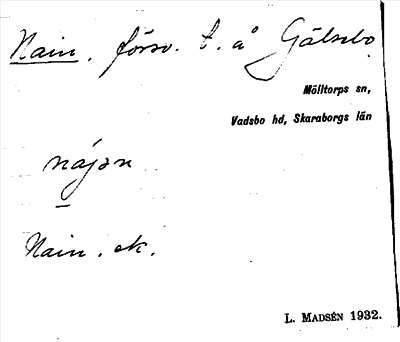 Nain. försv. t. å Gälsebo
Mölltorps sn,
Vadsbo hd, Skaraborgs län
nájɔn
Nain. ek.
L. MADSÉN 1932.